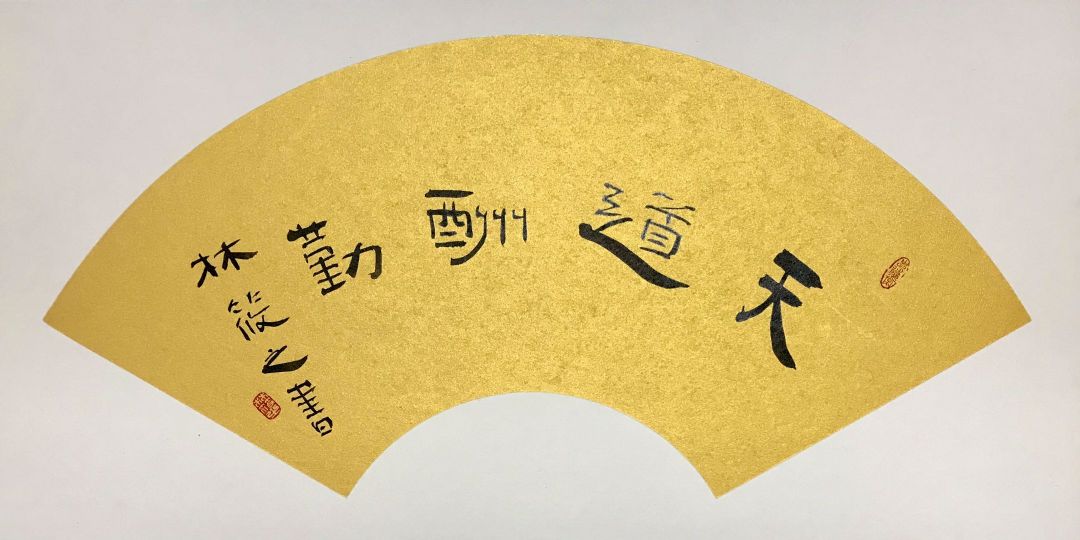 天道酬勤
林筱之書